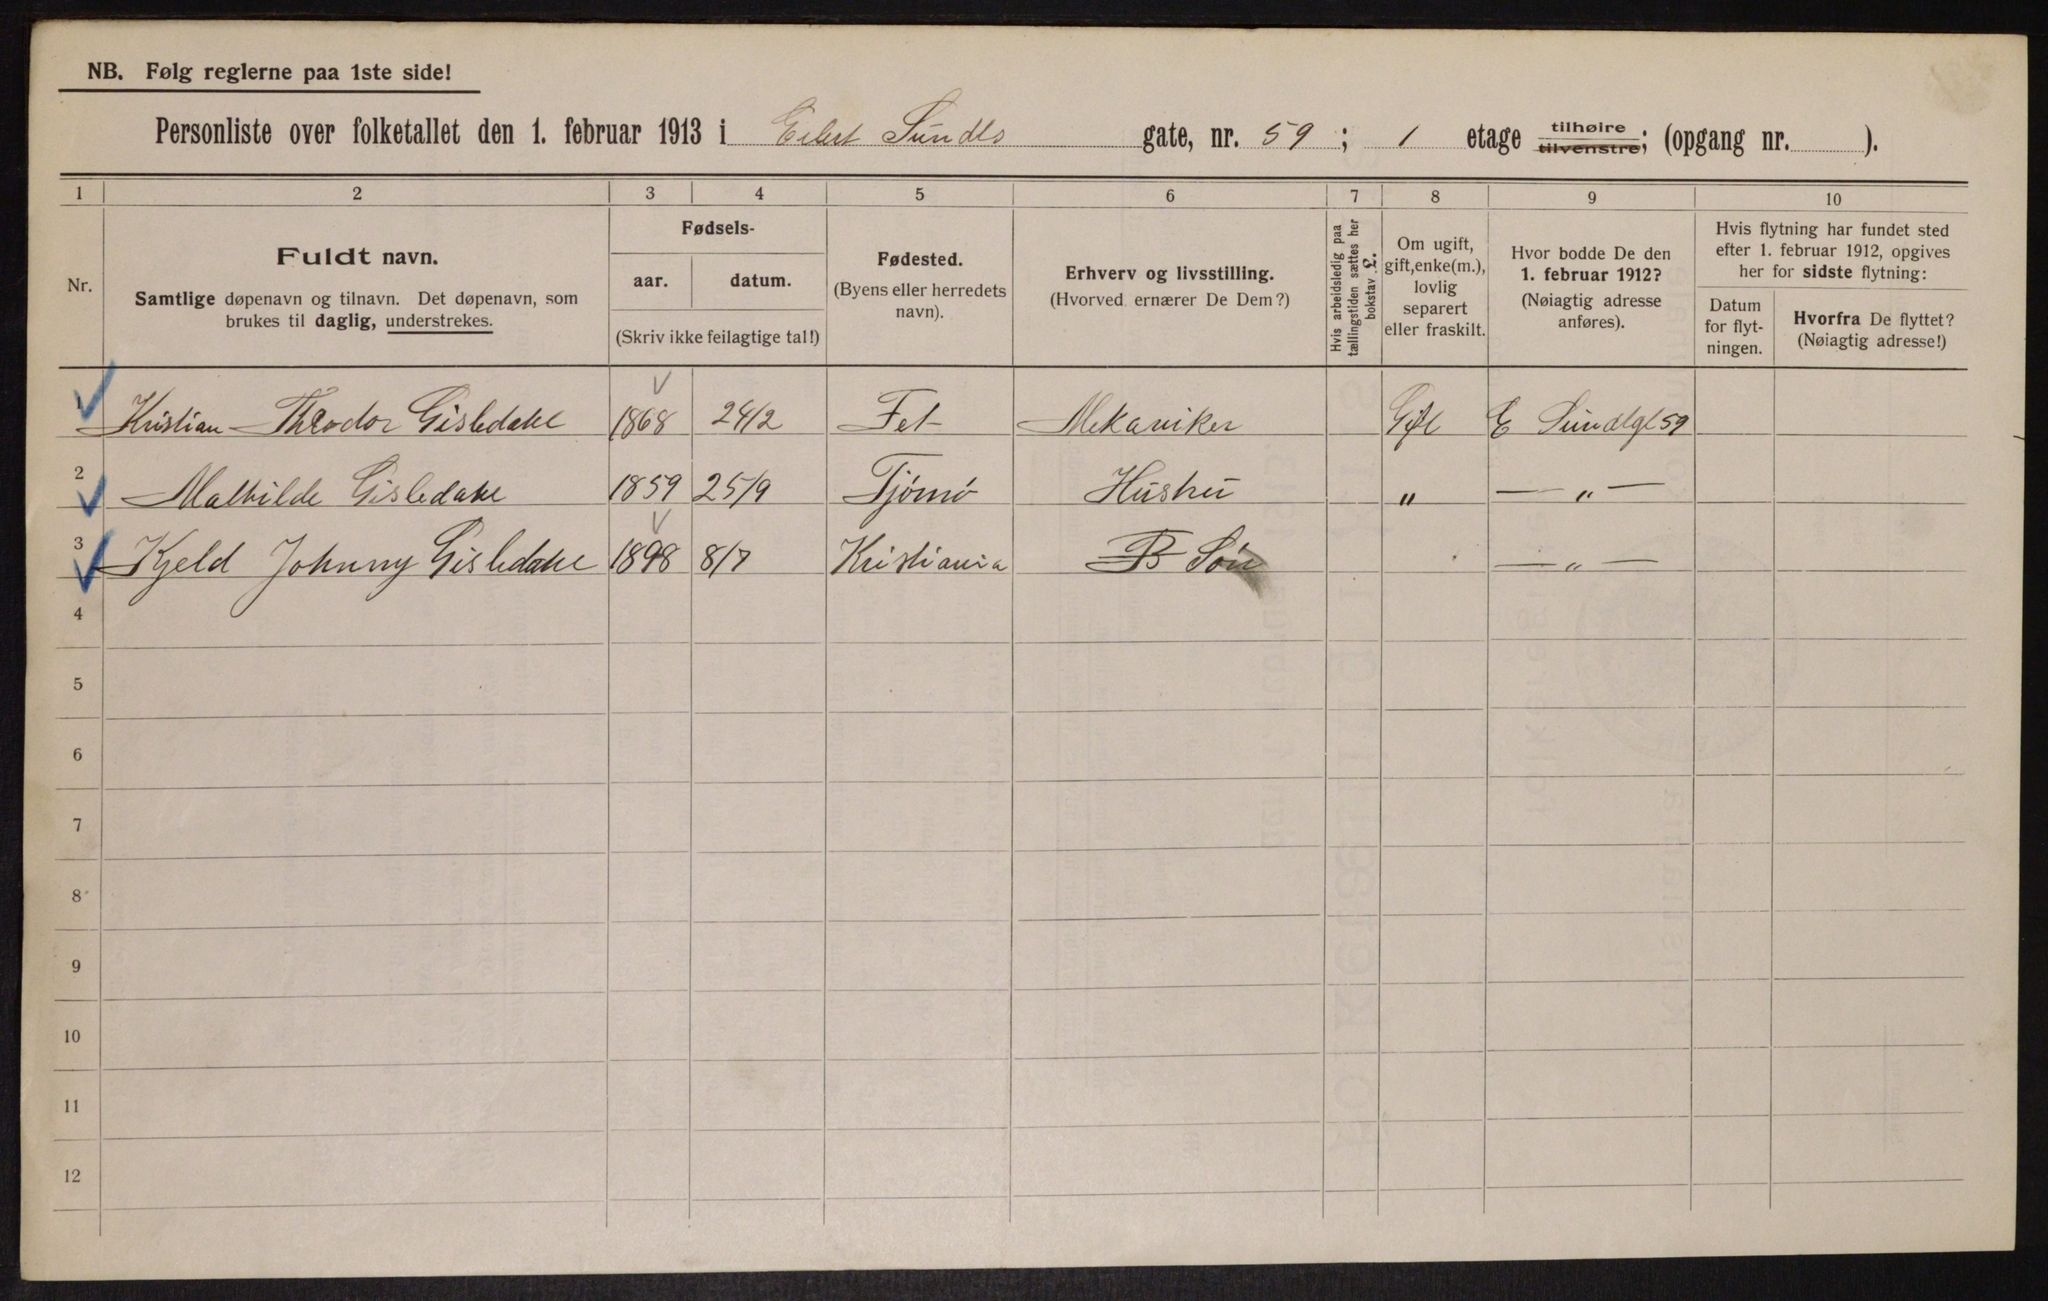 NB. Følg reglerne paa 1ste side!
Personliste over folketallet den 1. februar 1913 i Eilert Sundts gate, nr. 59 ; 1 etage tilhøire tilvenstre; (opgang nr. ).
1 2 3 4 5 6 7 8 9 10
Nr.
Fuldt navn.
Samtlige døpenavn og tilnavn. Det døpenavn, som
brukes til daglig, understrekes.
Fødsels-
aar. datum.
(Skriv ikke feilagtige tal!)
Fødested.
(Byens eller herredets
navn).
Erhverv og livsstilling.
(Hvorved ernærer De Dem?)
Hvis arbeidsledig paa
tællingstiden sættes her
bokstav L.
Om ugift,
gift, enke(m.),
lovlig
separert
eller fraskilt.
Hvor bodde De den
1. februar 1912?
(Nøiagtig adresse
anføres).
Hvis flytning har fundet sted
efter 1. februar 1912, opgives
her for sidste flytning:
Datum
for flyt-
ningen.
Hvorfra De flyttet?
(Nøiagtig adresse!)
1 Kristian Theodor Gisledake 1868 24/2 Fet Mekaniker Gift E Sundtgt 59
2 Mathilde Gisledake 1859 25/9 Tjømø Hustru " — " —
3 Kjeld Johnny Gisledake 1898 8/7 Kristiania B Søn — " —
4
5
6
7
8
9
10
11
12